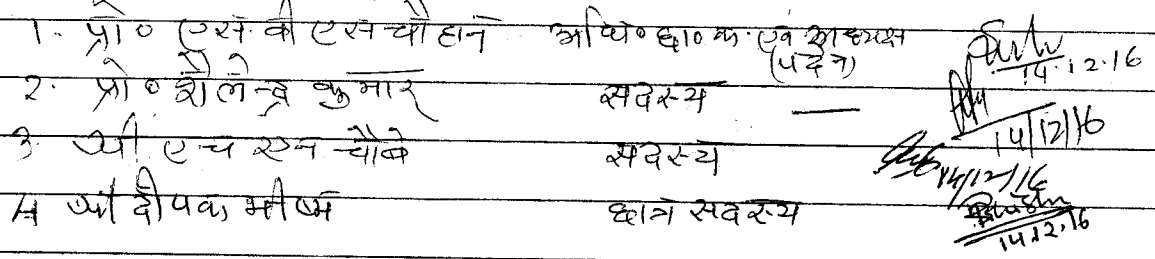 1. प्रो० एस. वी एस चौहान अधि० छा० क. एवं अध्यक्ष 14.12.16
(पदेन)
2. प्रो० शैलेन्द्र कुमार सदस्य — 14/12/16
3. श्री एच एन चौबे सदस्य 14/12/16
4 श्री दीपक भीष्म छात्र सदस्य 14.12.16